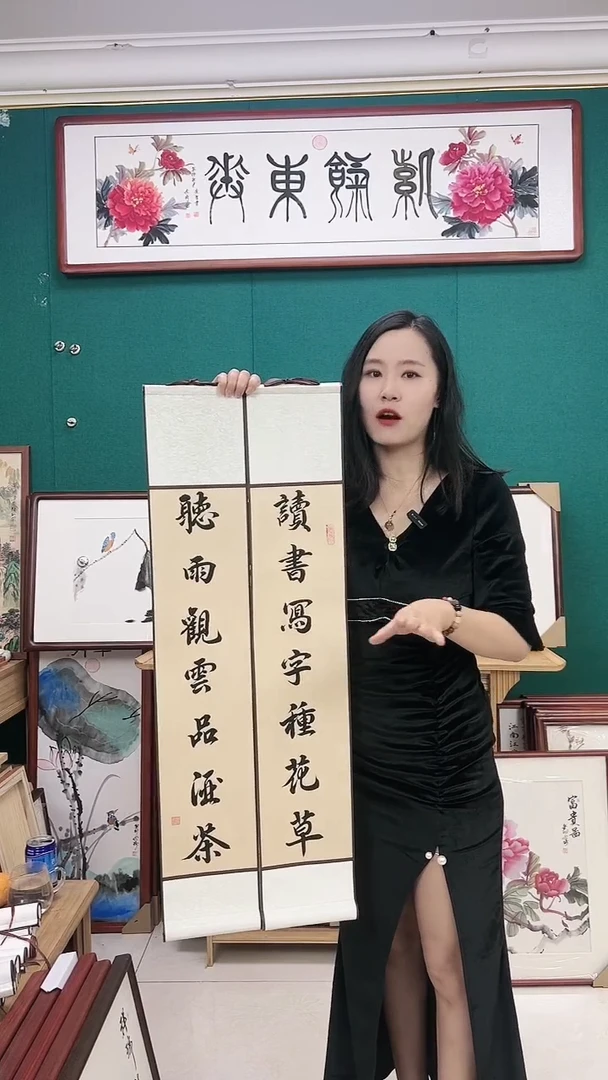 紫氣東來
讀書寫字種花草
聽雨觀雲品酒茶
江南江
富貴圖